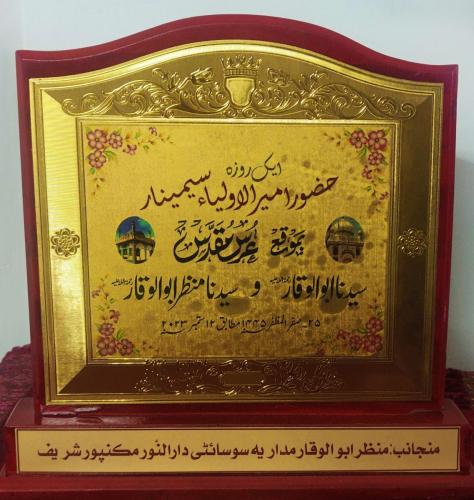 ایک روزہ
حضور امیر الاولیاء سیمینار
بموقع عُرسِ مُقدّس
سیدنا ابوالوقار رحمۃ اللہ علیہ و سیدنا منظر ابوالوقار رحمۃ اللہ علیہ
۲۵۔ صفر المظفر ۱۴۴۵ مطابق ۱۲ ستمبر ۲۰۲۳
منجانب: منظر ابو الوقار مداریہ سوسائٹی دار النّور مکنپور شریف